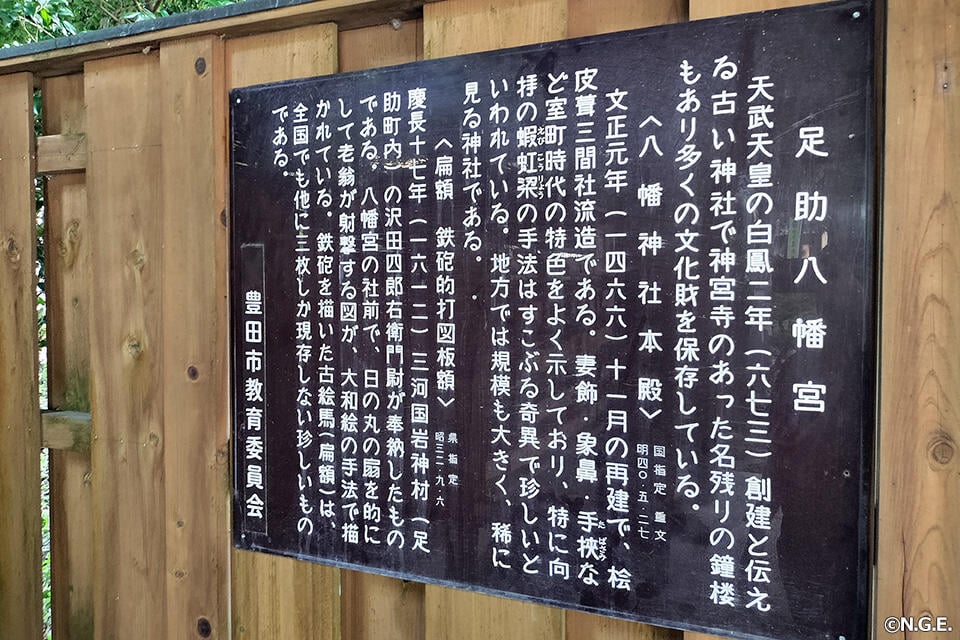 足助八幡宮
天武天皇の白鳳二年（六七三）創建と伝え
る古い神社で神宮寺のあった名残りの鐘楼
もあり多くの文化財を保存している。
〈八幡神社本殿〉
国指定 重文
明四〇・五・二七
文正元年（一四六六）十一月の再建で、桧
皮葺三間社流造である。妻飾・象鼻・手挾な
たばさみ
ど室町時代の特色をよく示しており、特に向
拝の蝦虹梁の手法はすこぶる奇異で珍しいと
えびこうりょう
いわれている。地方では規模も大きく、稀に
見る神社である。
〈扁額 鉄砲的打図板額〉
県指定
昭三二・九・六
慶長十七年（一六一二）三河国岩神村（足
助町内）の沢田四郎右衛門尉が奉納したもの
である。八幡宮の社前で、日の丸の扇を的に
して老翁が射撃する図が、大和絵の手法で描
かれている。鉄砲を描いた古絵馬（扁額）は、
全国でも他に三枚しか現存しない珍しいもの
である。
豊田市教育委員会
©N.G.E.